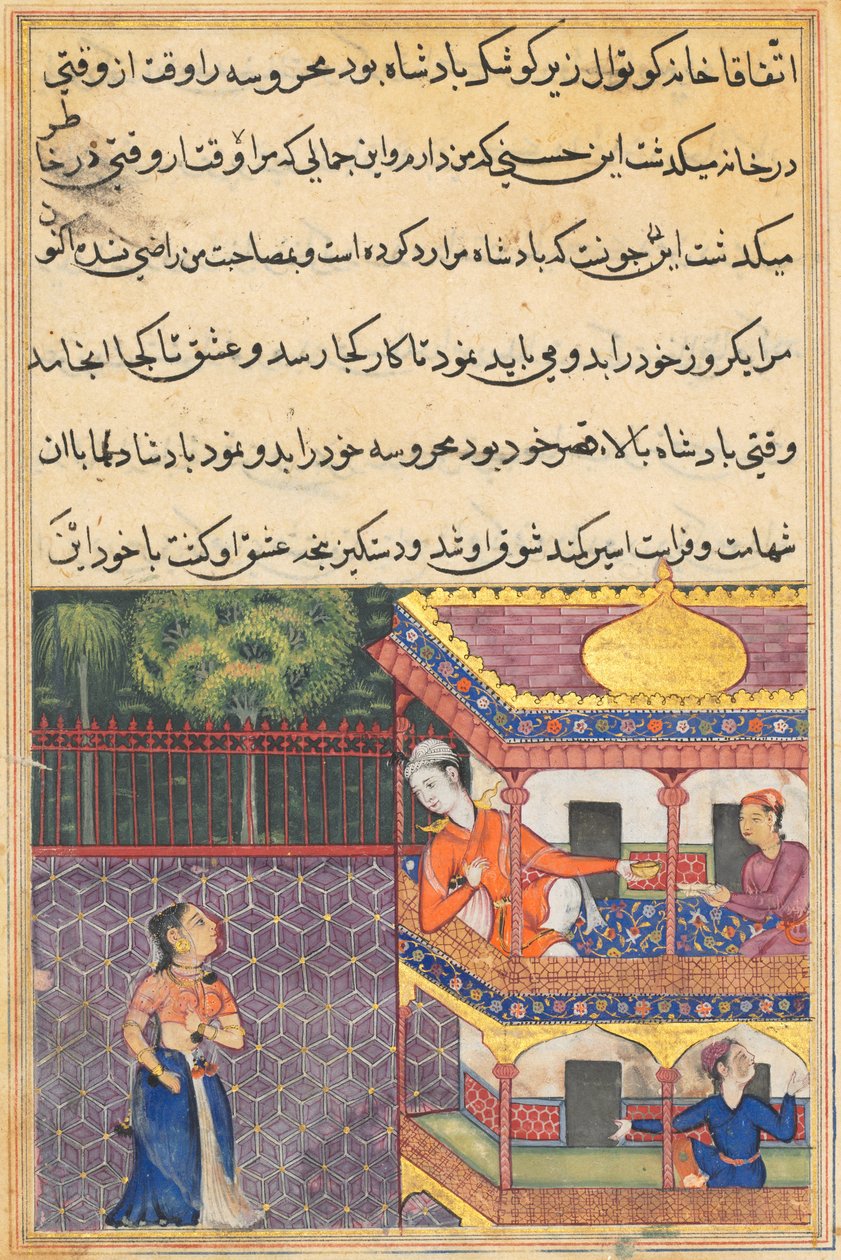 اتّفاقا خانه کوتوال زیر کوشک بادشاه بود محروسه را وقت از وقتی
در خانه میکدشت این حسنی که من دارم و این جمالی که مرا وقتا روقتی در خاطر
میکدشت این جونست که بادشاه مرا رد کرده است و بمصاحبت من راضی نشده اکنون
مرا یکروز خود را بدو می باید نمود تا کار کجا رسد و عشق تا کجا انجامد
وقتی بادشاه بالاء قصر خود بود محروسه خود را بدو نمود بادشاه باان
شهامت و فراست اسیر کمند شوق او شد و دستکیر بنجه عشق او کشت با خود این